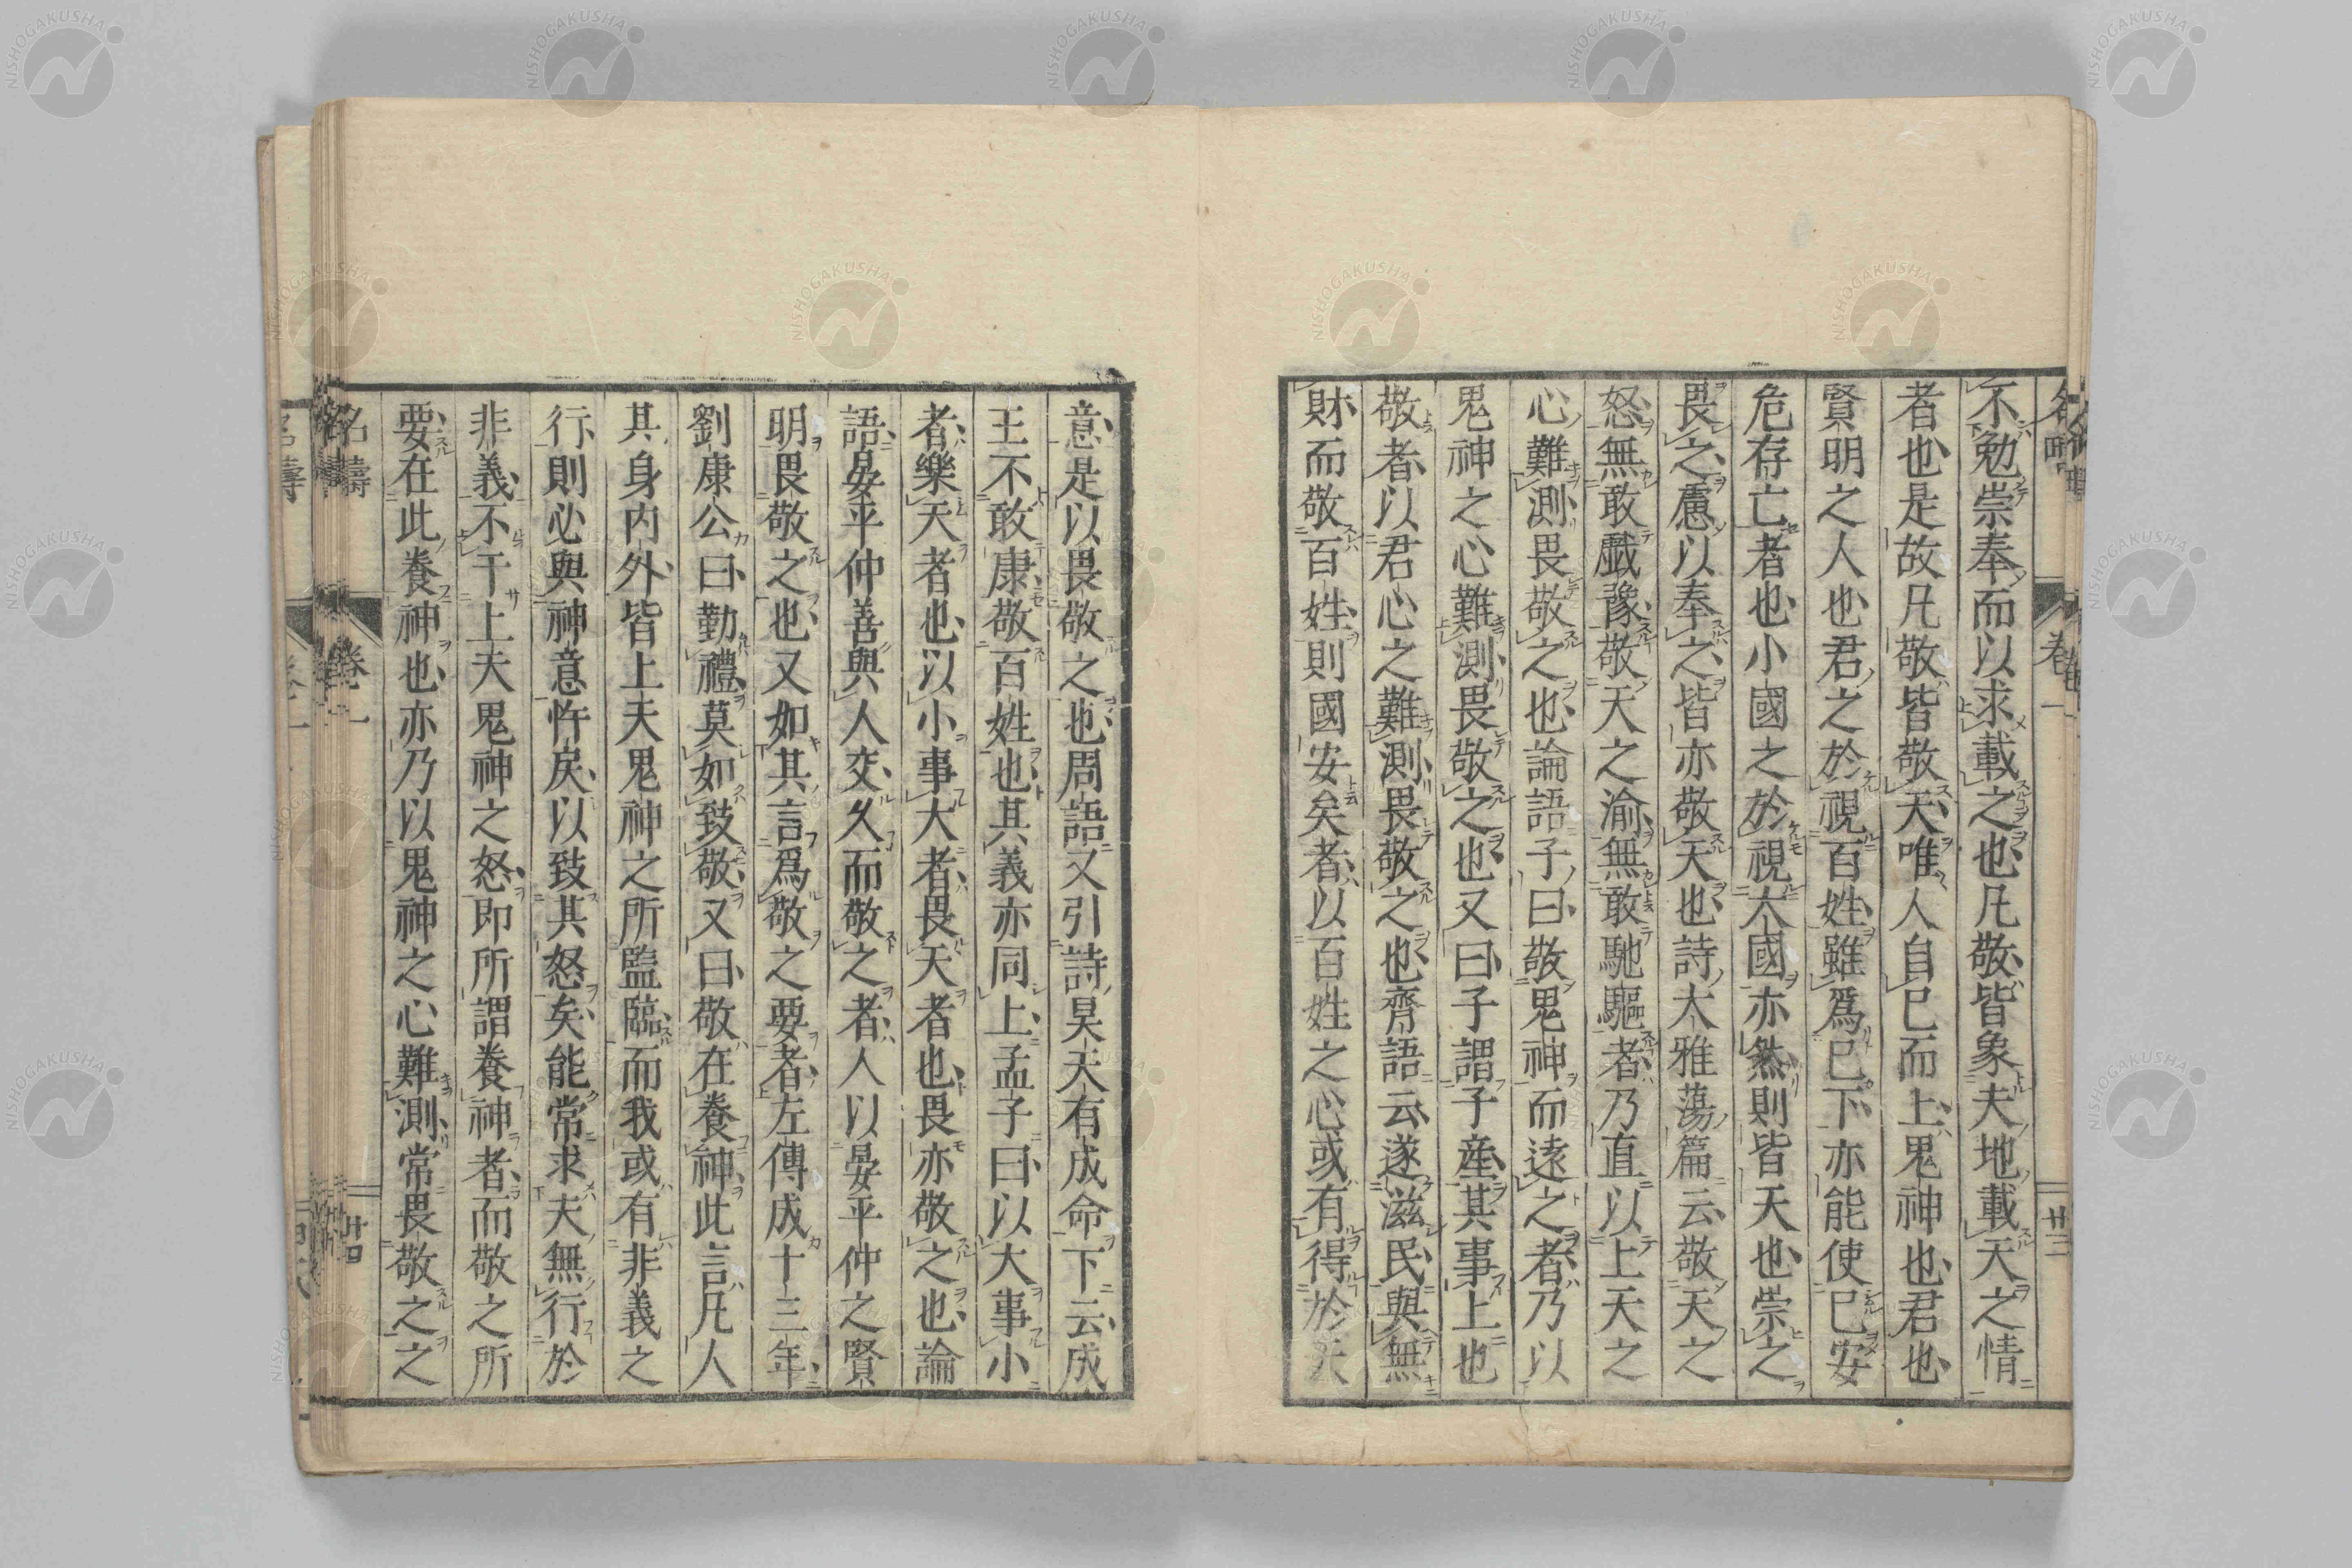 不勉崇奉而以求載之也凡敬皆象夫地載天之情
者也是故凡敬皆敬天唯人自巳而上鬼神也君也
賢明之人也君之於視百姓雖爲巳下亦能使巳安
危存亡者也小國之於視大國亦然則皆天也崇之
畏之慮以奉之皆亦敬天也詩大雅蕩篇云敬天之
怒無敢戯豫敬天之渝無敢馳驅者乃直以上天之
心難測畏敬之也論語子曰敬鬼神而遠之者乃以
鬼神之心難測畏敬之也又曰子謂子産其事上也
敬者以君心之難測畏敬之也齊語云遂滋民與無
財而敬百姓則國安矣者以百姓之心或有得於天
意是以畏敬之也周語又引詩昊天有成命下云成
王不敢康敬百姓也其義亦同上孟子曰以大事小
者樂天者也以小事大者畏天者也畏亦敬之也論
語晏平仲善與人交久而敬之者人以晏平仲之賢
明畏敬之也又如其言爲敬之要者左傳成十三年
劉康公曰勤禮莫如致敬又曰敬在養神此言凡人
其身内外皆上天鬼神之所監臨而我或有非義之
行則必與神意忤戻以致其怒矣能常求夫無行於
非義不干上天鬼神之怒即所謂養神者而敬之所
要在此養神也亦乃以鬼神之心難測常畏敬之之
名疇
卷一
廿三
名疇
卷一
廿四
NISHOGAKUSHA